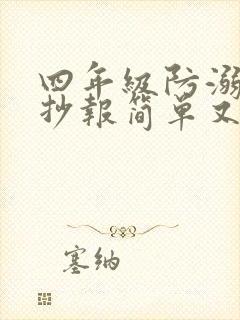 四年级防溺
抄報简单又
塞纳